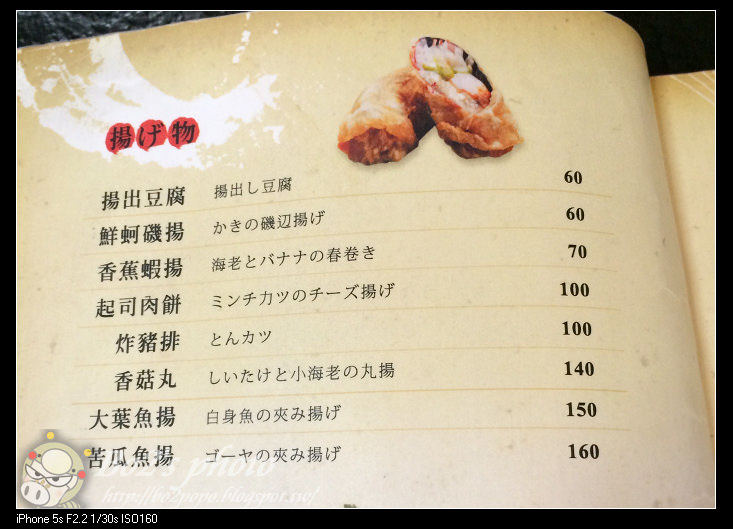 揚げ物
揚出豆腐 揚出し豆腐 60
鮮蚵磯揚 かきの磯辺揚げ 60
香蕉蝦揚 海老とバナナの春巻き 70
起司肉餅 ミンチカツのチーズ揚げ 100
炸豬排 とんカツ 100
香菇丸 しいたけと小海老の丸揚 140
大葉魚揚 白身魚の夾み揚げ 150
苦瓜魚揚 ゴーヤの夾み揚げ 160
bo2's photo
http://bo2popo.blogspot.tw/
iPhone 5s F2.2 1/30s ISO160